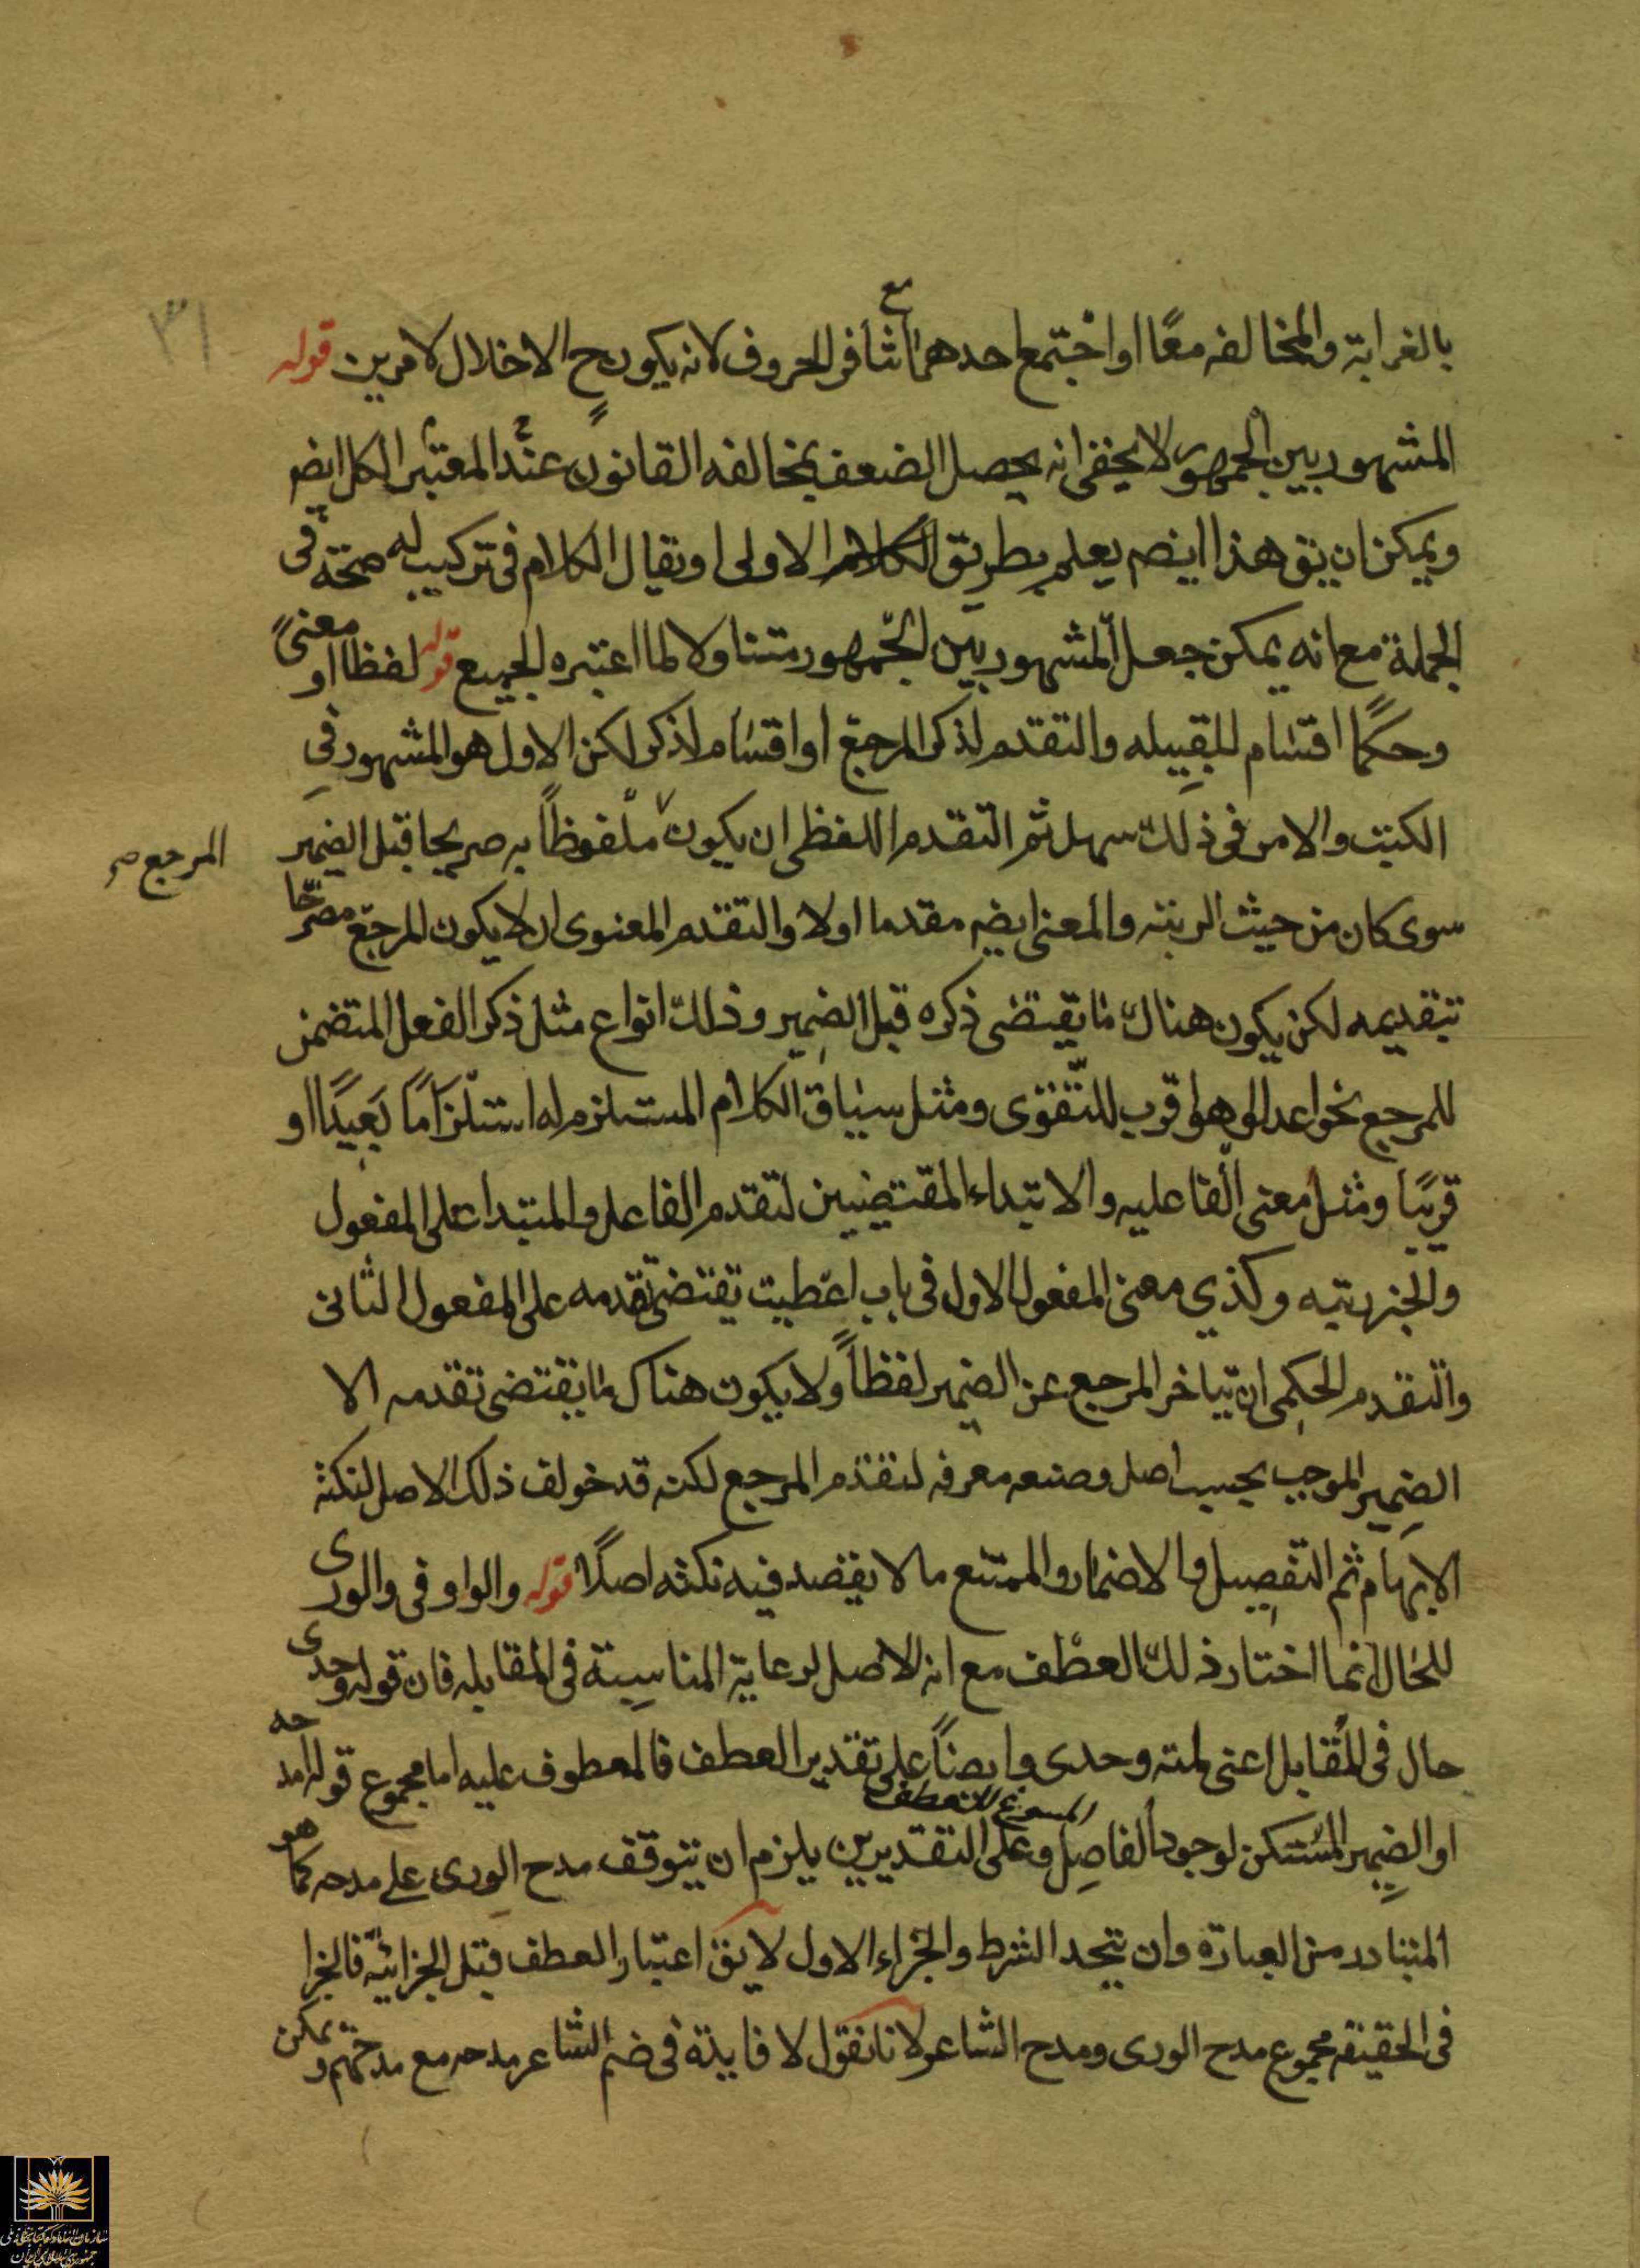 ٣١
بالغرابة والمخالفه معًا او اجتمع احدهما مع تنافر الحروف لانه يكون ح الاخلال لامرين قوله
المشهور بين الجمهور لا يخفى انه يحصل الضعف بمخالفه القانون عند المعتبر الكل ايضا
ويمكن ان يق هذا ايضم يعلم بطريق الكلام الاولى او يقال الكلام في تركيب له صحة في
الجملة مع انه يمكن جعل المشهور بين الجمهور متناولا لما اعتبره الجميع قوله لفظا او معنىً
وحكمًا اقسام للقبيله والتقدم لذكر المرجع او اقسام لذكر لكن الاول هو المشهور في
الكتب والامر في ذلك سهل ثم التقدم اللفظي ان يكون ملفوظاً به صريحا قبل الضمير
المرجع صح
سوى كان من حيث الرتبته والمعنى ايضم مقدما اولا والتقدم المعنوى ان لا يكون المرجع مصرحًا
بتقديمه لكن يكون هناك ما يقتضى ذكره قبل الضمير وذلك انواع مثل ذكر الفعل المتضمن
للمرجع نحو اعدلوا هو اقرب للتقوى ومثل سياق الكلام المستلزم له استلزامًا بعيدًا او
قريبًا ومثل معنى الفاعليه والابتداء المقتضيين لتقدم الفاعل والمبتدا على المفعول
والخبريتيه وكذي معنى المفعول الاول في باب اعطيت يقتضى تقدمه على المفعول الثانى
والتقدم الحكمى ان يتاخر المرجع عن الضمير لفظاً ولا يكون هناك ما يقتضى تقدمه الا
الضمير الموجب بحسب اصل وضعه معرفه لتقدم المرجع لكنه قد خولف ذلك الاصل لنكتة
الابهام ثم التفصيل والاضمار والممتنع ما لا يقصد فيه نكته اصلًا قوله والواو فى والورى
للحال انما اختار ذلك العطف مع انه الاصل لرعاية المناسبة فى المقابله فان قوله وحدى
حال فى المقابل اعنى لمته وحدى وايضاً على تقدير العطف فالمعطوف عليه اما مجموع قوله امدحه
او الضمير المستكن لوجود الفاصل المسوغ للعطف وعلى التقديرين يلزم ان يتوقف مدح الورى على مدحه كما هو
المتبادر من العبارة وان يتحد الشرط والجزاء الاول لا يق اعتبار العطف قبل الجزائية فالجزا
فى الحقيقه مجموع مدح الورى ومدح الشاعر لانا نقول لا فايدة فى ضم الشاعر مدحه مع مدحهم ويمكن
سازمان اسناد و کتابخانه ملی
جمهوری اسلامی ایران